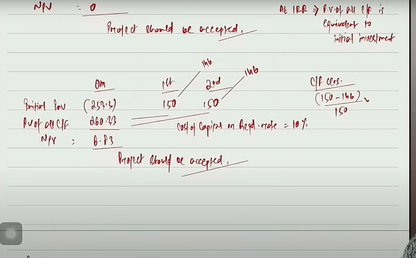 NPV : 0
At IRR → PV of all C/F is
equivalent to
initial investment
Project should be accepted.
146 146
0m 1st 2nd C/F
Initial Inv (253.5) 150 150 (150-146)
150
PV of all C/F 260.33 Cost of Capital or Reqd. rate = 10%
NPV : 6.83
Project should be accepted.